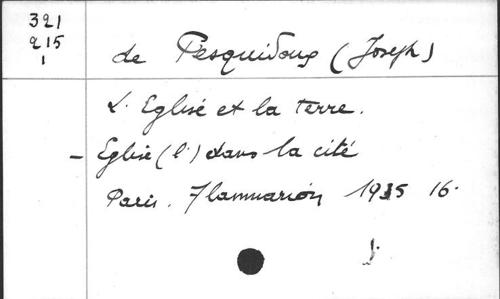 321
215
1
de Pesquidoux (Joseph)
L'Eglise et la terre.
- Eglise (l') dans la cité
Paris. Flammarion 1935 16.